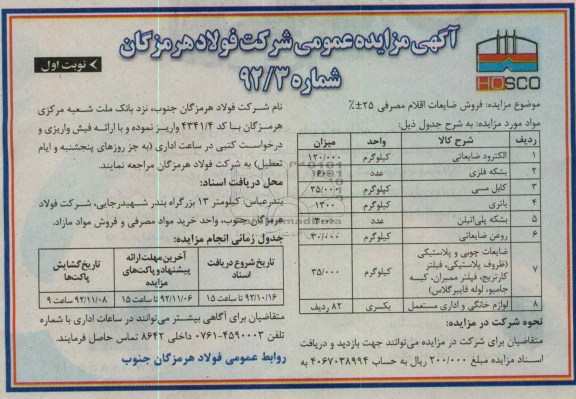 آگهی مزایده عمومی شرکت فولاد هرمزگان
شماره ۹۲/۳
نوبت اول
HOSCO
موضوع مزایده: فروش ضایعات اقلام مصرفی ۲۵±٪
مواد مورد مزایده: به شرح جدول ذیل:
ردیف شرح کالا واحد میزان
۱ الکترود ضایعاتی کیلوگرم ۱۲۰/۰۰۰
۲ بشکه فلزی عدد
۳ کابل مسی کیلوگرم ۳۵/۰۰۰
۴ باتری کیلوگرم ۱۳۰۰
۵ بشکه پلی‌اتیلن عدد
۶ روغن ضایعاتی کیلوگرم ۳۰/۰۰۰
۷ ضایعات چوبی و پلاستیکی
(ظروف پلاستیکی، فیلتر
کارتریج، فیلتر ممبران، کیسه
جامبو، لوله فایبرگلاس)
کیلوگرم ۳۵/۰۰۰
۸ لوازم خانگی و اداری مستعمل یکسری ۸۲ ردیف
نحوه شرکت در مزایده:
متقاضیان برای شرکت در مزایده می‌توانند جهت بازدید و دریافت
اسناد مزایده مبلغ ۲۰۰/۰۰۰ ریال به حساب ۴۰۶۷۰۳۸۹۹۴ به
نام شرکت فولاد هرمزگان جنوب، نزد بانک ملت شعبه مرکزی
هرمزگان با کد ۴۳۴۱/۴ واریز نموده و با ارائه فیش واریزی و
درخواست کتبی در ساعت اداری (به جز روزهای پنجشنبه و ایام
تعطیل) به شرکت فولاد هرمزگان مراجعه نمایند.
محل دریافت اسناد:
بندرعباس: کیلومتر ۱۳ بزرگراه بندر شهیدرجایی، شرکت فولاد
هرمزگان جنوب، واحد خرید مواد مصرفی و فروش مواد مازاد.
جدول زمانی انجام مزایده:
تاریخ شروع دریافت اسناد آخرین مهلت ارائه پیشنهاد و پاکت‌های مزایده تاریخ گشایش پاکت‌ها
۹۲/۱۰/۱۶ تا ساعت ۱۵ ۹۲/۱۱/۰۶ تا ساعت ۱۵ ۹۲/۱۱/۰۸ ساعت ۹
متقاضیان برای آگاهی بیشتر می‌توانند در ساعات اداری با شماره
تلفن ۴۵۹۰۰۰۳-۰۷۶۱ داخلی ۸۶۴۲ تماس حاصل فرمایند.
روابط عمومی فولاد هرمزگان جنوب